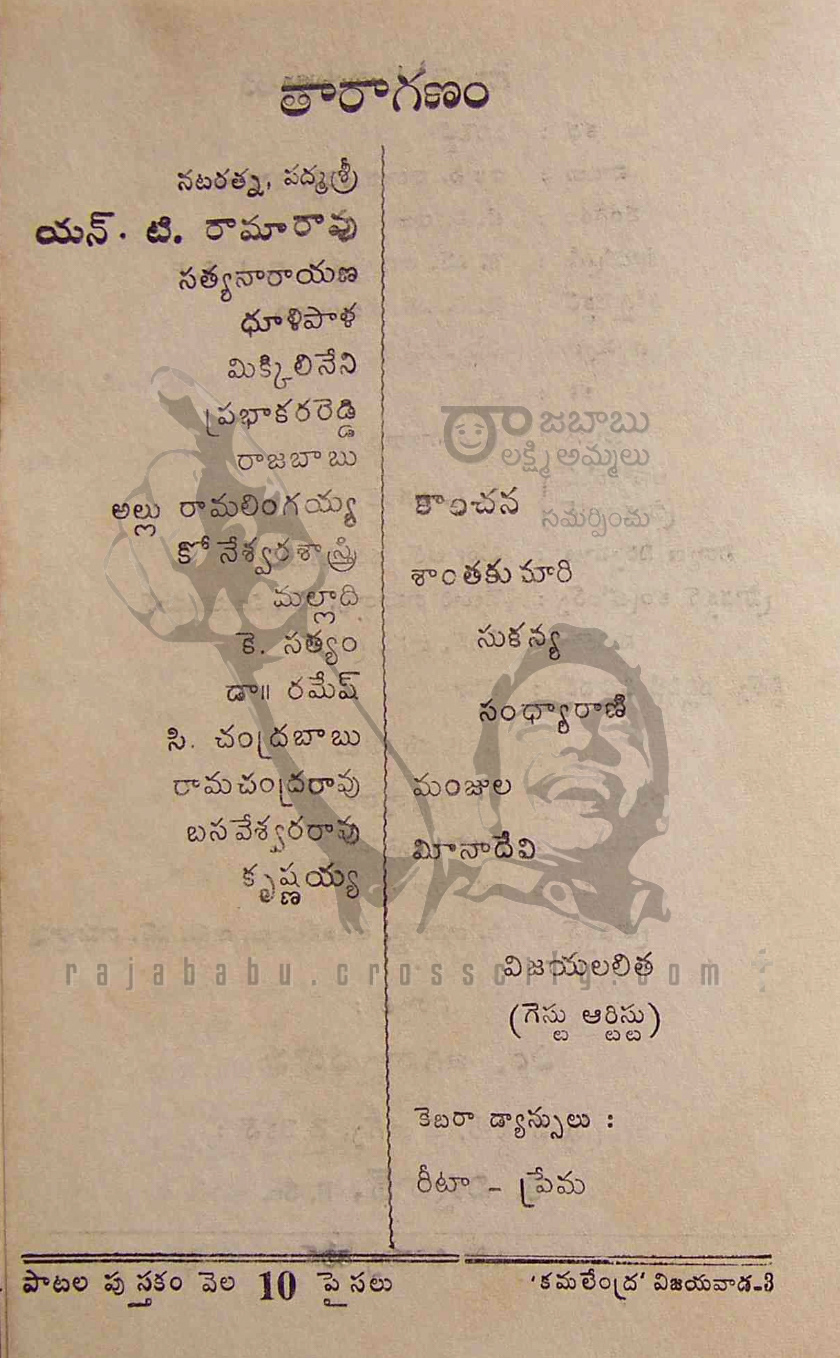 తారాగణం
నటరత్న, పద్మశ్రీ
యన్. టి. రామారావు
సత్యనారాయణ
ధూళిపాళ
మిక్కిలినేని
ప్రభాకరరెడ్డి
రాజబాబు
అల్లు రామలింగయ్య
కోనేశ్వరశాస్త్రి
మల్లాది
కె. సత్యం
డా॥ రమేష్
సి. చంద్రబాబు
రామచంద్రరావు
బసవేశ్వరరావు
కృష్ణయ్య
రాజబాబు
లక్ష్మిఅమ్మలు
సమర్పించు
కాంచన
శాంతకుమారి
సుకన్య
సంధ్యారాణి
మంజుల
మీనాదేవి
విజయలలిత
(గెస్టు ఆర్టిస్టు)
కెబరా డ్యాన్సులు :
రీటా - ప్రేమ
పాటల పుస్తకం వెల 10 పైసలు
'కమలేంద్ర' విజయవాడ-3